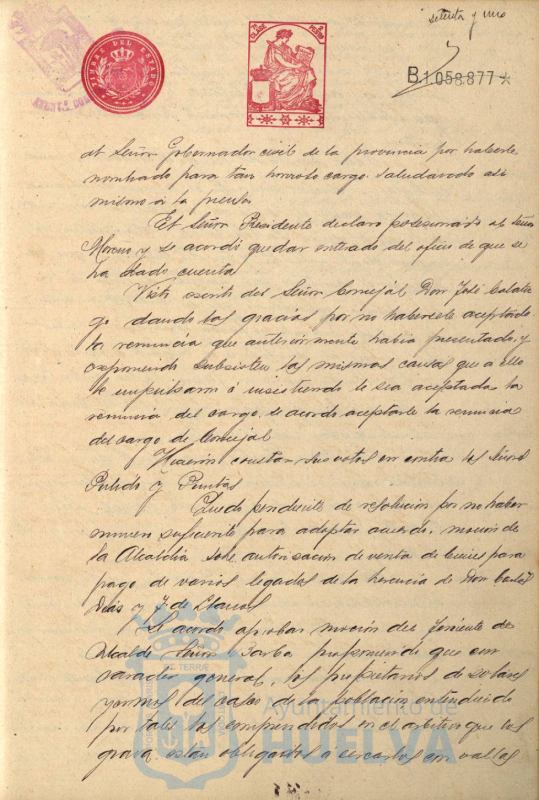 setenta y uno
TIMBRE DEL ESTADO
B.1.058.877*
al Señor Gobernador civil de la provincia por haberle
nombrado para tan honroso cargo. Saludando asi
mismo á la prensa
El Señor Presidente declaro posesionado al Señor
Moreno y se acordó quedar enterado del oficio de que se
ha dado cuenta
Visto escrito del Señor Concejál Don José
dando las gracias por no habersele aceptado
la renuncia que anteriormente habia presentado, y
exponiendo subsisten las mismas causas que a ello
le impulsaron é insistiendo le sea aceptada la
renuncia del cargo, se acordo aceptarle la renuncia
del cargo de Concejal
Hicieron constar sus votos en contra los Señores
Pulido y Puntas
Quedo pendiente de resolucion por no haber
numero suficiente para adoptar acuerdo, mocion de
la Alcaldia sobre autorizacion de venta de bienes para
pago de varios legados de la herencia de Don
y J. de Llanos
Se acordo aprobar mocion del Teniente de
Alcalde Señor Barba proponiendo que con
caracter general, los propietarios de solares
yermos del casco de la poblacion entendiendo
por tales los comprendidos en el arbitrio que los
grava, estan obligados á cercarlos con vallas
Ayuntamiento de
HUELVA